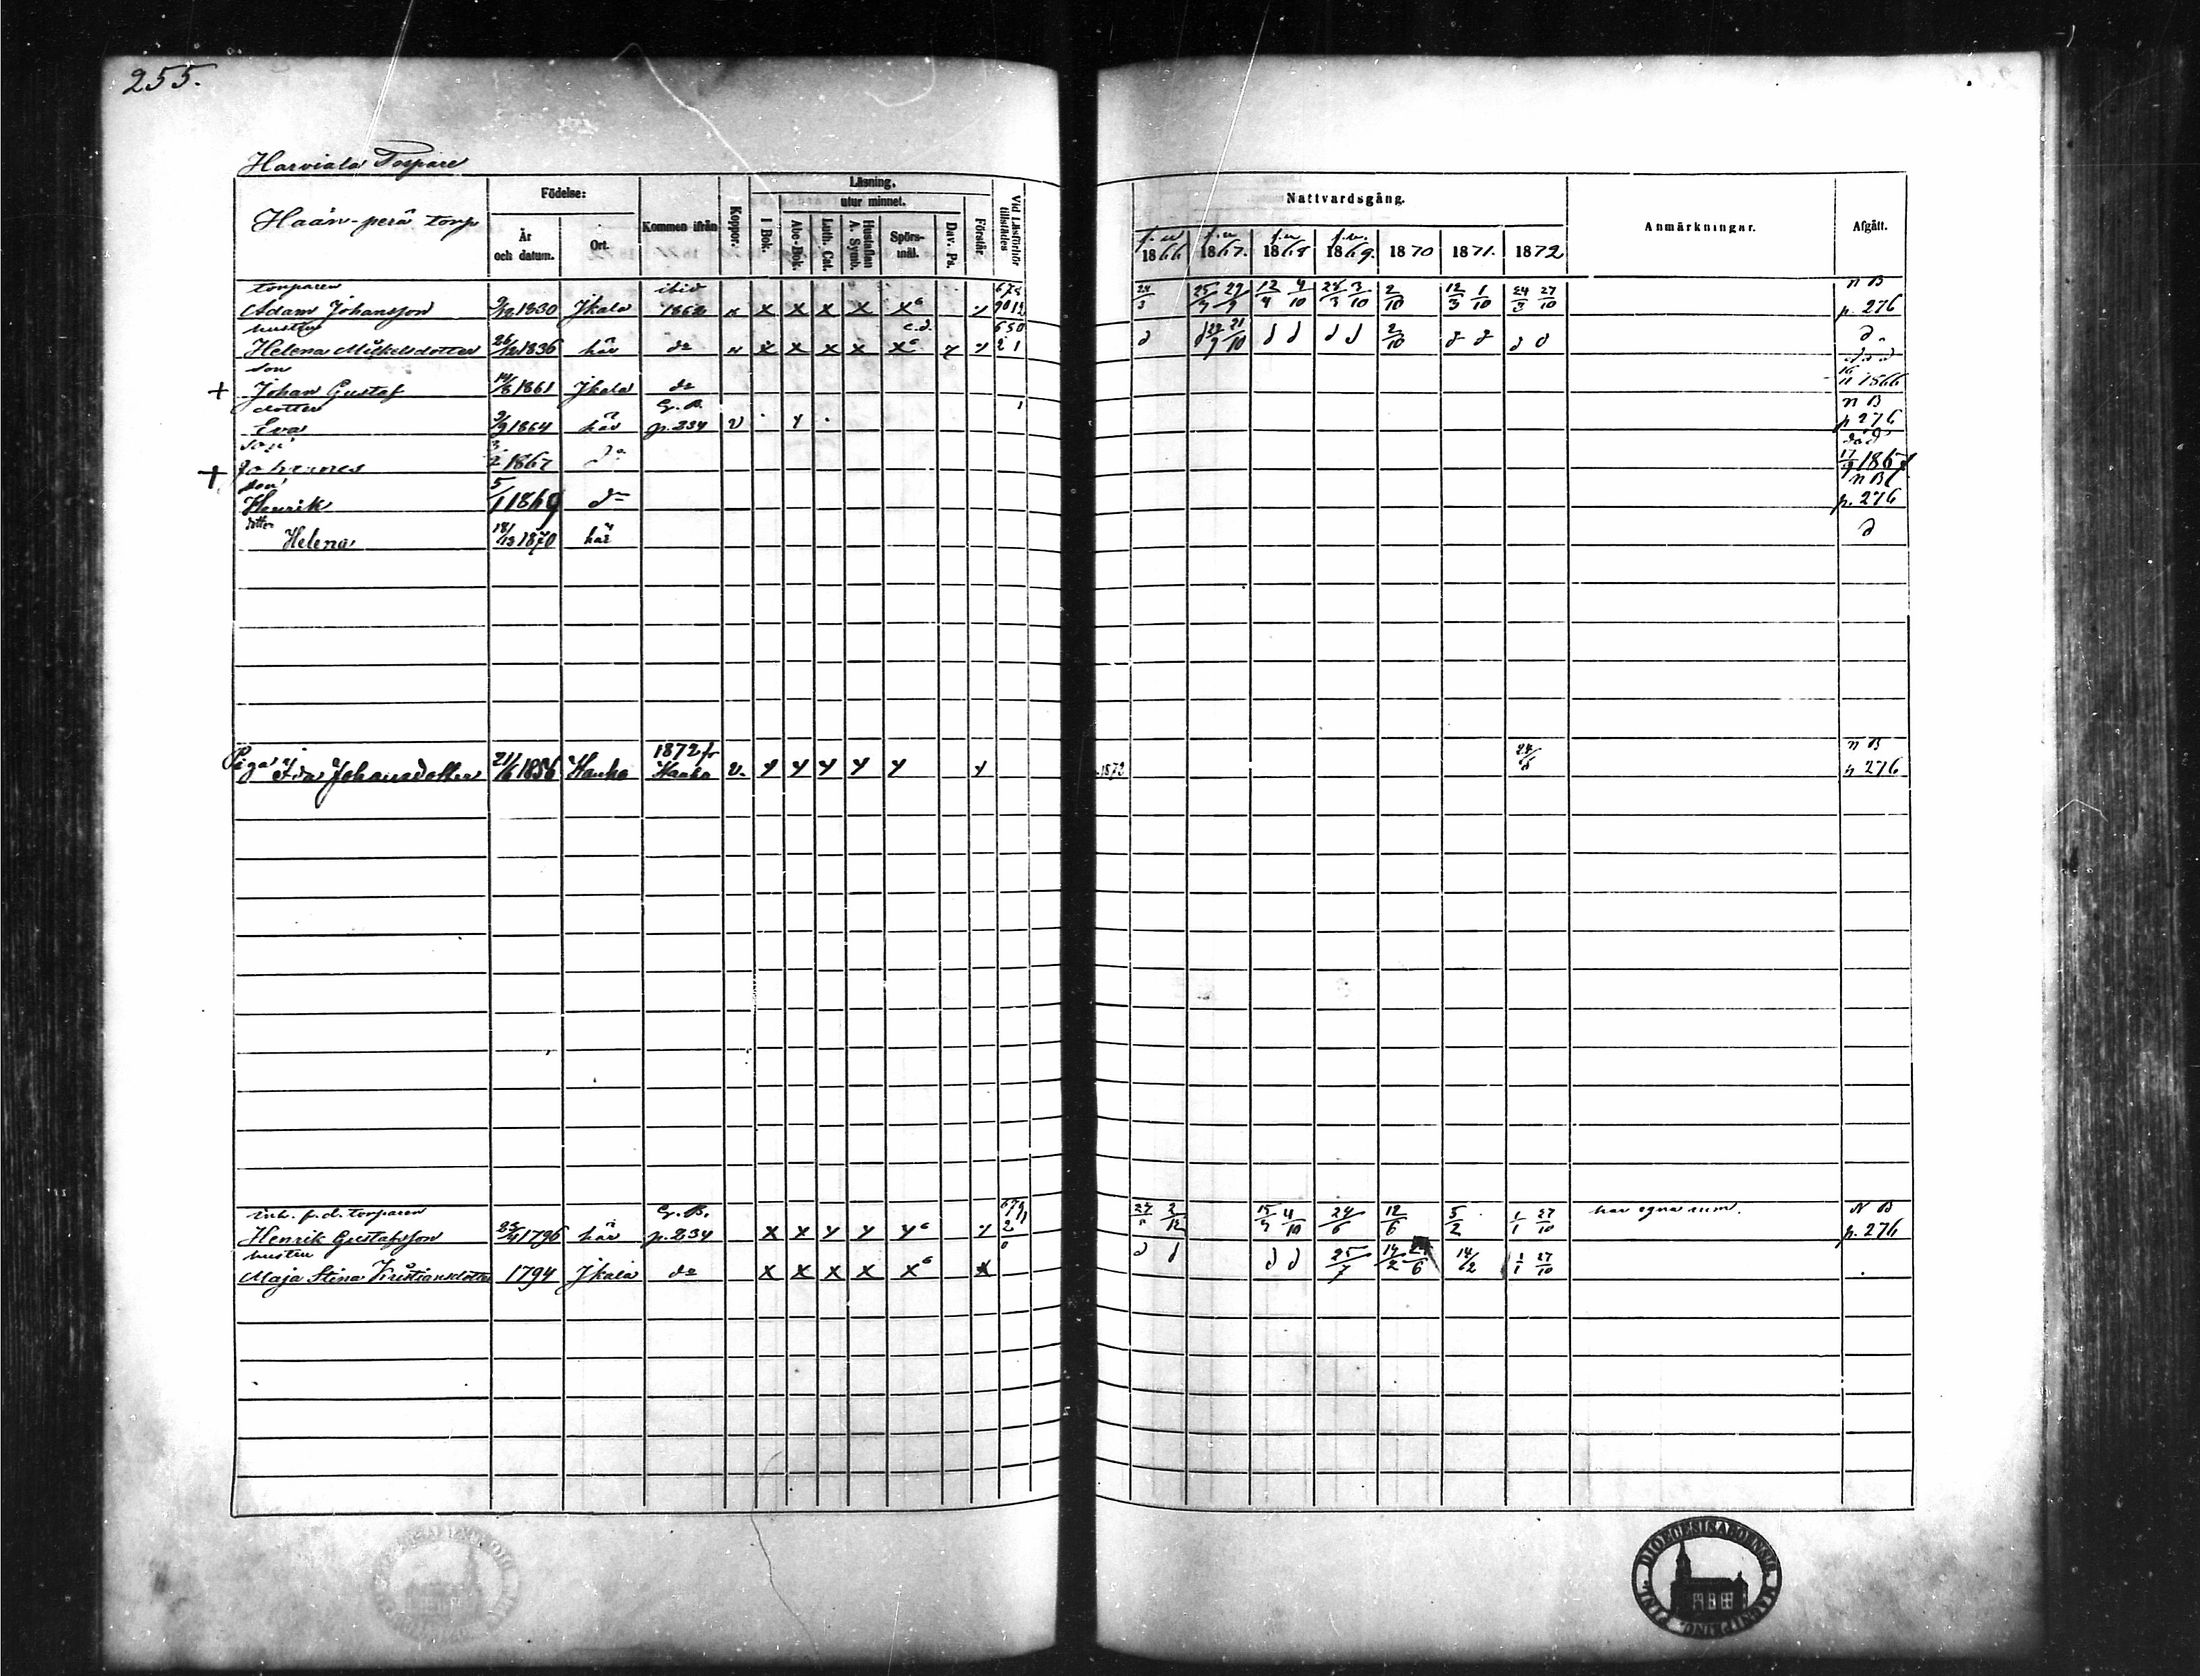 255.
Harviala Torpare
Haän-perä torp
Födelse:
År och datum.
Ort.
Kommen ifrån
Koppor.
Läsning.
utur minnet.
I Bok.
Abc-Bok.
Luth. Cat.
Hustaflan A. Symb.
Spörsmål.
Dav. Ps.
Förstår.
Vid Läsförhör tillstädes
Nattvardsgång.
1866 1867. 1868 1869. 1870 1871. 1872
Anmärkningar.
Afgått.
torparen ibid n B
Adam Johansson 9/12 1830 Jkala 1862 x x x x x6 24/3 12/4 4/10 2/10 12/3 1/10 24/3 27/10 p. 276
hustru c.d. 650
Helena Mickelsdotter 26/12 1836 här do x x x x x6 21 d d d d d 2/10 d d d d d
son död
+ Johan Gustaf 14/8 1861 Jkala do 16/11 1866
dotter G. B. n B
Eva 9/9 1864 här p. 234 v y p 276
son död
+ Johannes 3/2 1867 do 17/9 1867
son n B
Henrik 5/1 1869 do p. 276
dotter
Helena 18/12 1870 här d
1872 fr n B
Piga Ida Johansdotter 21/6 1856 Hauho Hauho v. y y y y y y 1872 24/6 p 276
inh. f.d. torparen G. B. har egna rum. N B
Henrik Gustafsson 1796 här p. 234 x x y y y6 2/12 4/10 24/6 12/6 5/2 1/1 27/10 p. 276
hustru
Maja Stina Kristiansdotter 1794 Jkala do x x x x x6 x d d d d 25/7 14/2 14/2 1/1 27/10
DIOECESIS ABOENSIS MAGNI PRINC. FINL.